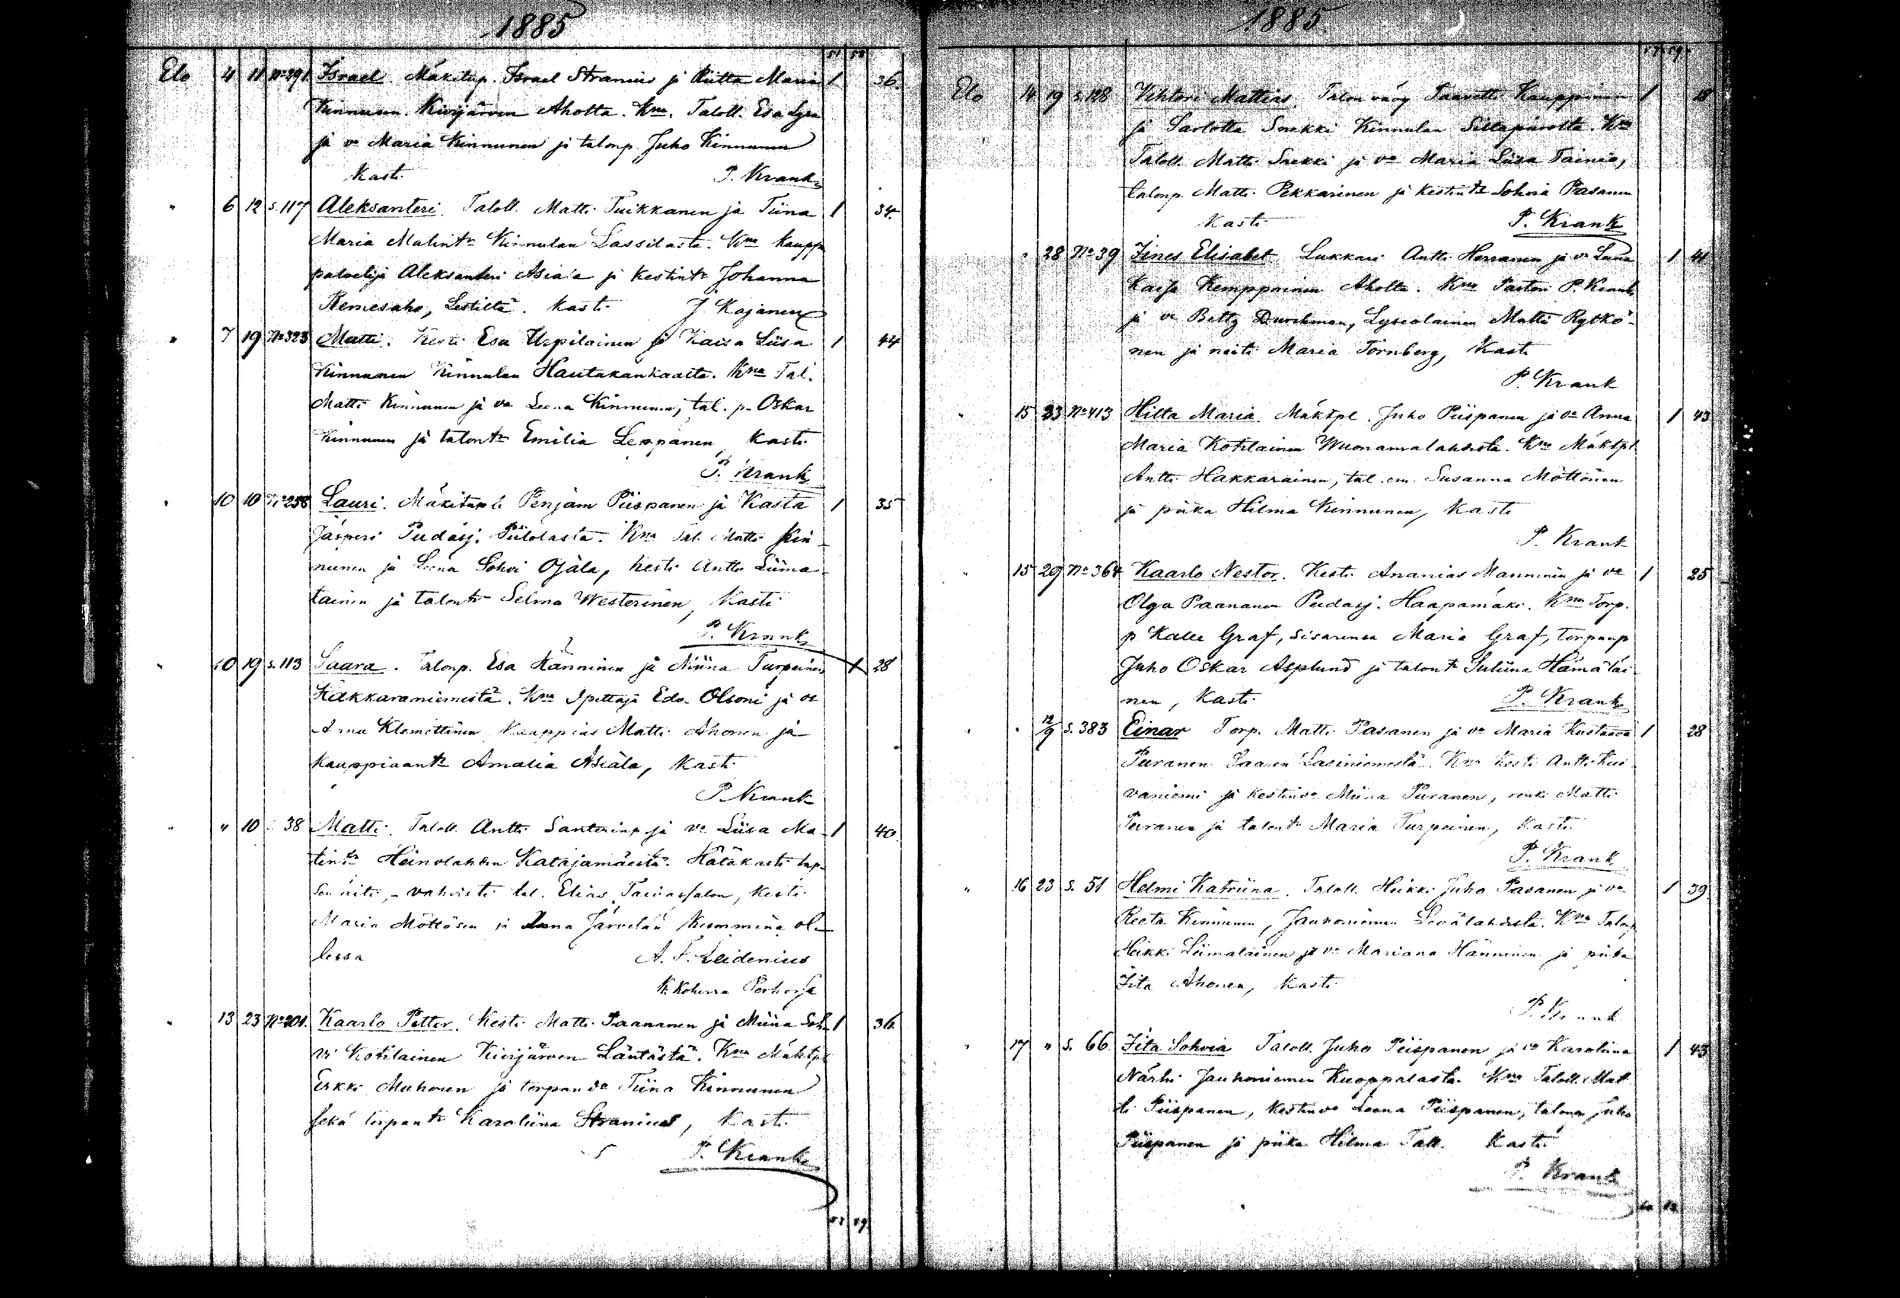 1885
51 58
Elo 4 11 No 391 Israel. Mäkitup. Israel Stranius ja Riitta Maria 1 36.
Kinnunen Kivijärven Aholta. Kva. Taloll. Esa
ja vo Maria Kinnunen ja talonp. Juho Kinnunen
Kasti P. Krank
" 6 12 s. 117 Aleksanteri. Taloll. Matti Tuikkanen ja Tiina 1 34.
Maria Matintr Kinnulan Lassilasta. Kva kaupp
palvelija Aleksanteri Asiala ja kestintr Johanna
Remesaho, Lestiltä. Kasti J Kajanen
" 7 19 No 323 Matti. Kesti Esa Urpilainen ja Kaisa Liisa 1 44
Kinnunen Kinnulan Hautakankaalta. Kva Tal.
Matti Kinnunen ja vo Leena Kinnunen, tal. p. Oskar
Kinnunen ja talontr Emilia Leppänen Kasti
P. Krank
" 10 10 No 258 Lauri. Mäkitupl. Penjam Piispanen ja Kaisa 1 35
Jäsperi Pudasj. Piilolasta. Kva Tal. Matti Kin-
nunen ja Leena Sohvi Ojala, kesti Antti Liima-
tainen ja talontr Selma Westerinen, Kasti
P. Krank
" 10 19 s. 113 Saara. Talonp. Esa Hänninen ja Miina Turpeinen 1 28
Kakkaraniemestä. Kva Opettaja Edv. Olsoni ja vo
Anna Klemettinen Kauppias Matti Ahonen ja
kauppiaantr Amalia Asiala, Kasti
P. Krank
" " 10 38 Matti. Taloll. Antti Santeriinp. ja vo Liisa Ma- 1 40
tintr Heinolahden Katajamäeltä. Hätäkasti tap-
vahvisti tal. Elias kesti
Maria Möttösen ja Anna Järvelän kummina ol-
lessa A. F. Leidenius
K. Koherra Perhossa
" 13 23 No 201. Kaarlo Petter. Kesti Matti Paananen ja Miina Soh- 1 36.
vi Kotilainen Kivijärven Läntästä. Kva Mäkitpl
Erkki Muhonen ja torpanvo Tiina Kinnunen
sekä torpantr Karoliina Stranius, Kasti
P. Krank
52 59
1885.
57 59
Elo 14 19 s. 128 Vihtori Mattias. Talon vävy Taavetti Kauppinen 1 18
ja Sarlotta Snekki Kinnulan Siltapirolta. Kva
Taloll. Matti Snekki ja vo Maria Liisa Tainio,
talonp. Matti Pekkarinen ja kestintr Sohvia Pasanen
Kasti P. Krank
" 28 No 39 Iines Elisabet Lukkari Antti Herranen ja vo Leena 1 41
Kaisa Kemppainen Aholta. Kva Pastori P. Krank
ja vo Betty Durchman, Lyseolainen Matti Rytkö-
nen ja neiti Maria Törnberg, Kasti
P. Krank
" 15 23 No 413 Hilta Maria. Mäktpl. Juho Piispanen ja vo Anna 1 43
Maria Kotilainen Wuonamalahdesta. Kva Mäktpl.
Antti Hakkarainen, tal. em. Susanna Möttönen
ja piika Hilma Kinnunen, Kasti
P. Krank
" 15 29 No 364 Kaarlo Nestor. Kesti Ananias Manninen ja vo 1 25
Olga Paananen Pudasj. Haapamäki. Kva Torp.
p Kalle Graf, sisarensa Maria Graf, torpanp
Juho Oskar Asplund ja talontr Juliina Hämäläi-
nen, Kasti P. Krank
" " 12/9 s. 383 Einar Torp. Matti Pasanen ja vo Maria Kustaava 1 28
Puranen Saaren Lasiniemestä. Kva Kesti Antti Kui-
vaniemi ja kestinvo Miina Puranen, renki Matti
Puranen ja talontr Maria Turpeinen, Kasti
P. Krank
" 16 23 s. 51 Helmi Katriina. Taloll. Heikki Juho Pasanen ja vo 1 39
Reeta Kinnunen, Jauhoniemen Leväladhesta. Kva Talonp
Heikki Liimatainen ja vo Mariana Hänninen ja piika
Iita Ahonen, Kasti
P. Krank
" 17 " s. 66 Iita Sohvia Taloll. Juho Piispanen ja vo Karoliina 1 43
Närhi Jauhoniemen Kuoppalasta. Kva Taloll. Mat-
ti Piispanen, kestinvo Leena Piispanen, talonp Juho
Piispanen ja piika Hilma Tall. Kasti
P. Krank